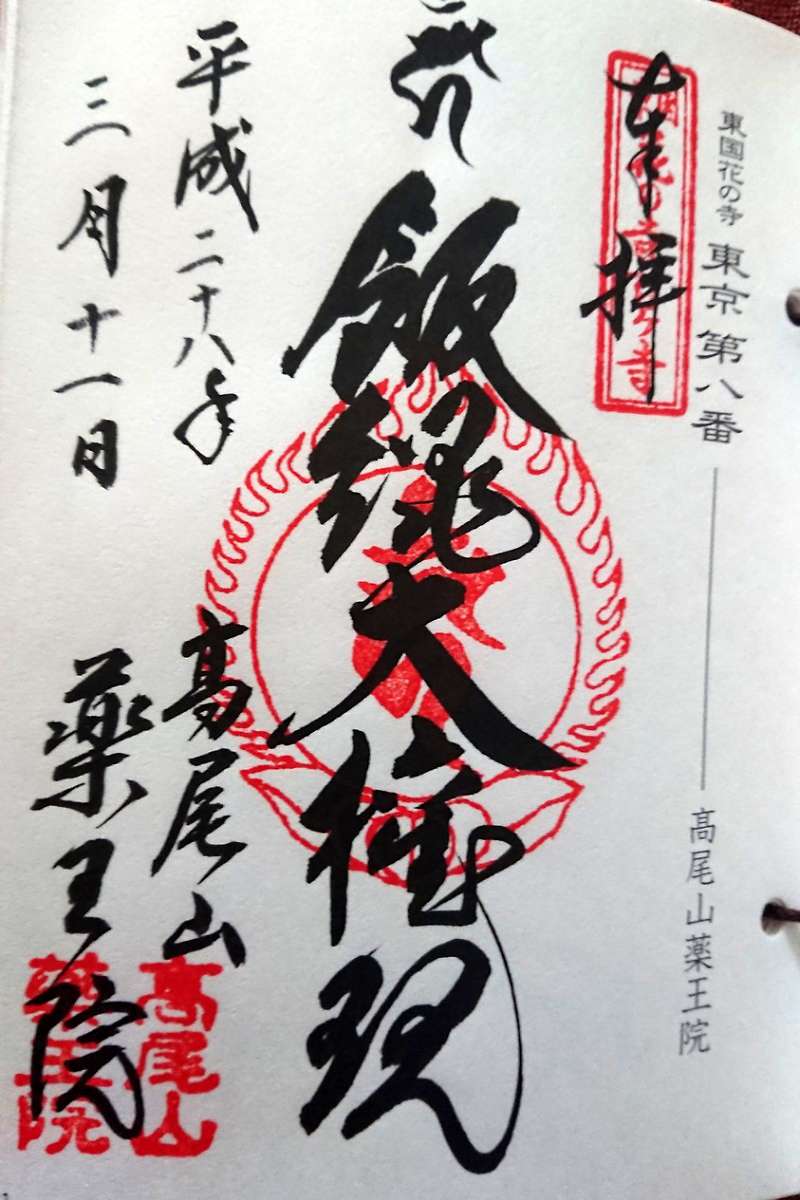 東国花の寺 東京 第八番 髙尾山薬王院
奉拝
飯縄大権現
平成二十八年
三月十一日
髙尾山
薬王院
髙尾山
薬王院